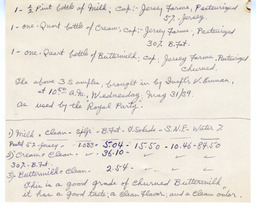 1- ½ Pint bottle of Milk, Cap:- Jersey Farms, Pasteurized
5% Jersey.
1- one-Quart bottle of Cream; Cap:- Jersey Farms, Pasteurized
30% B.Fat.
1- one-Quart bottle of Buttermilk. Cap: Jersey Farms, Pasteurized
Churned.
The above 3 samples, brought in by Insp'tr
at 10:00 A.M., Wednesday, May 31/39.
as used by the Royal Party.
1) Milk - Clean - Sp.Gr - B.Fat - T.Solids - S.N.F. - Water %
Past'd 5% Jersey - 5.04 - 15.50 - 10.46 - 84.50
2) Cream - Clean - 36.10 -
30% B.Fat.
3) Buttermilk - Clean. 2.54 -
This is a good grade of Churned Buttermilk
it has a good taste, a clean flavor, and a clean odor.